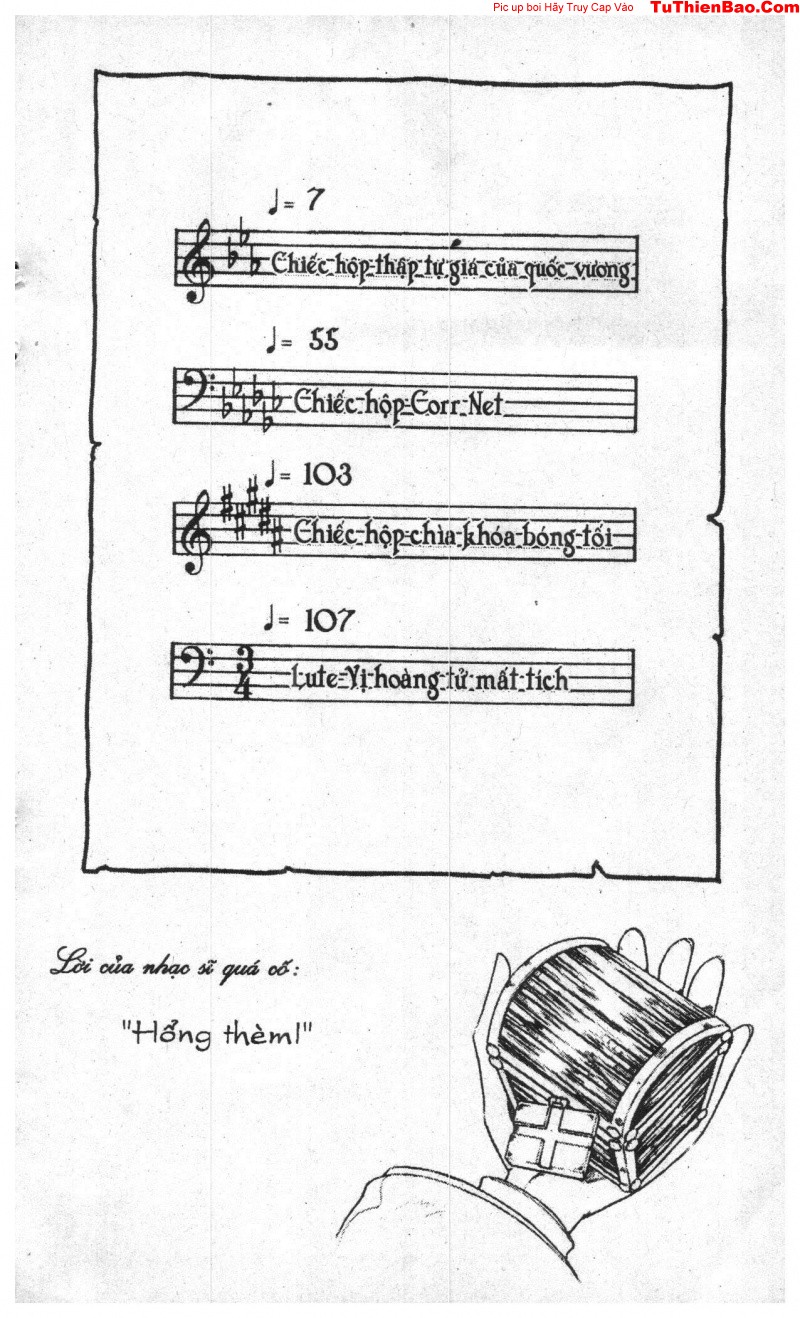 Pic up boi Hãy Truy Cap Vào TuThienBao.Com
♩= 7
Chiếc hộp thập tự giá của quốc vương
♩= 55
Chiếc hộp Corr Net
♩= 103
Chiếc hộp chìa khóa bóng tối
♩= 107
3
4
Lute-Vị hoàng tử mất tích
Lời của nhạc sĩ quá cố:
"Hổng thèm!"